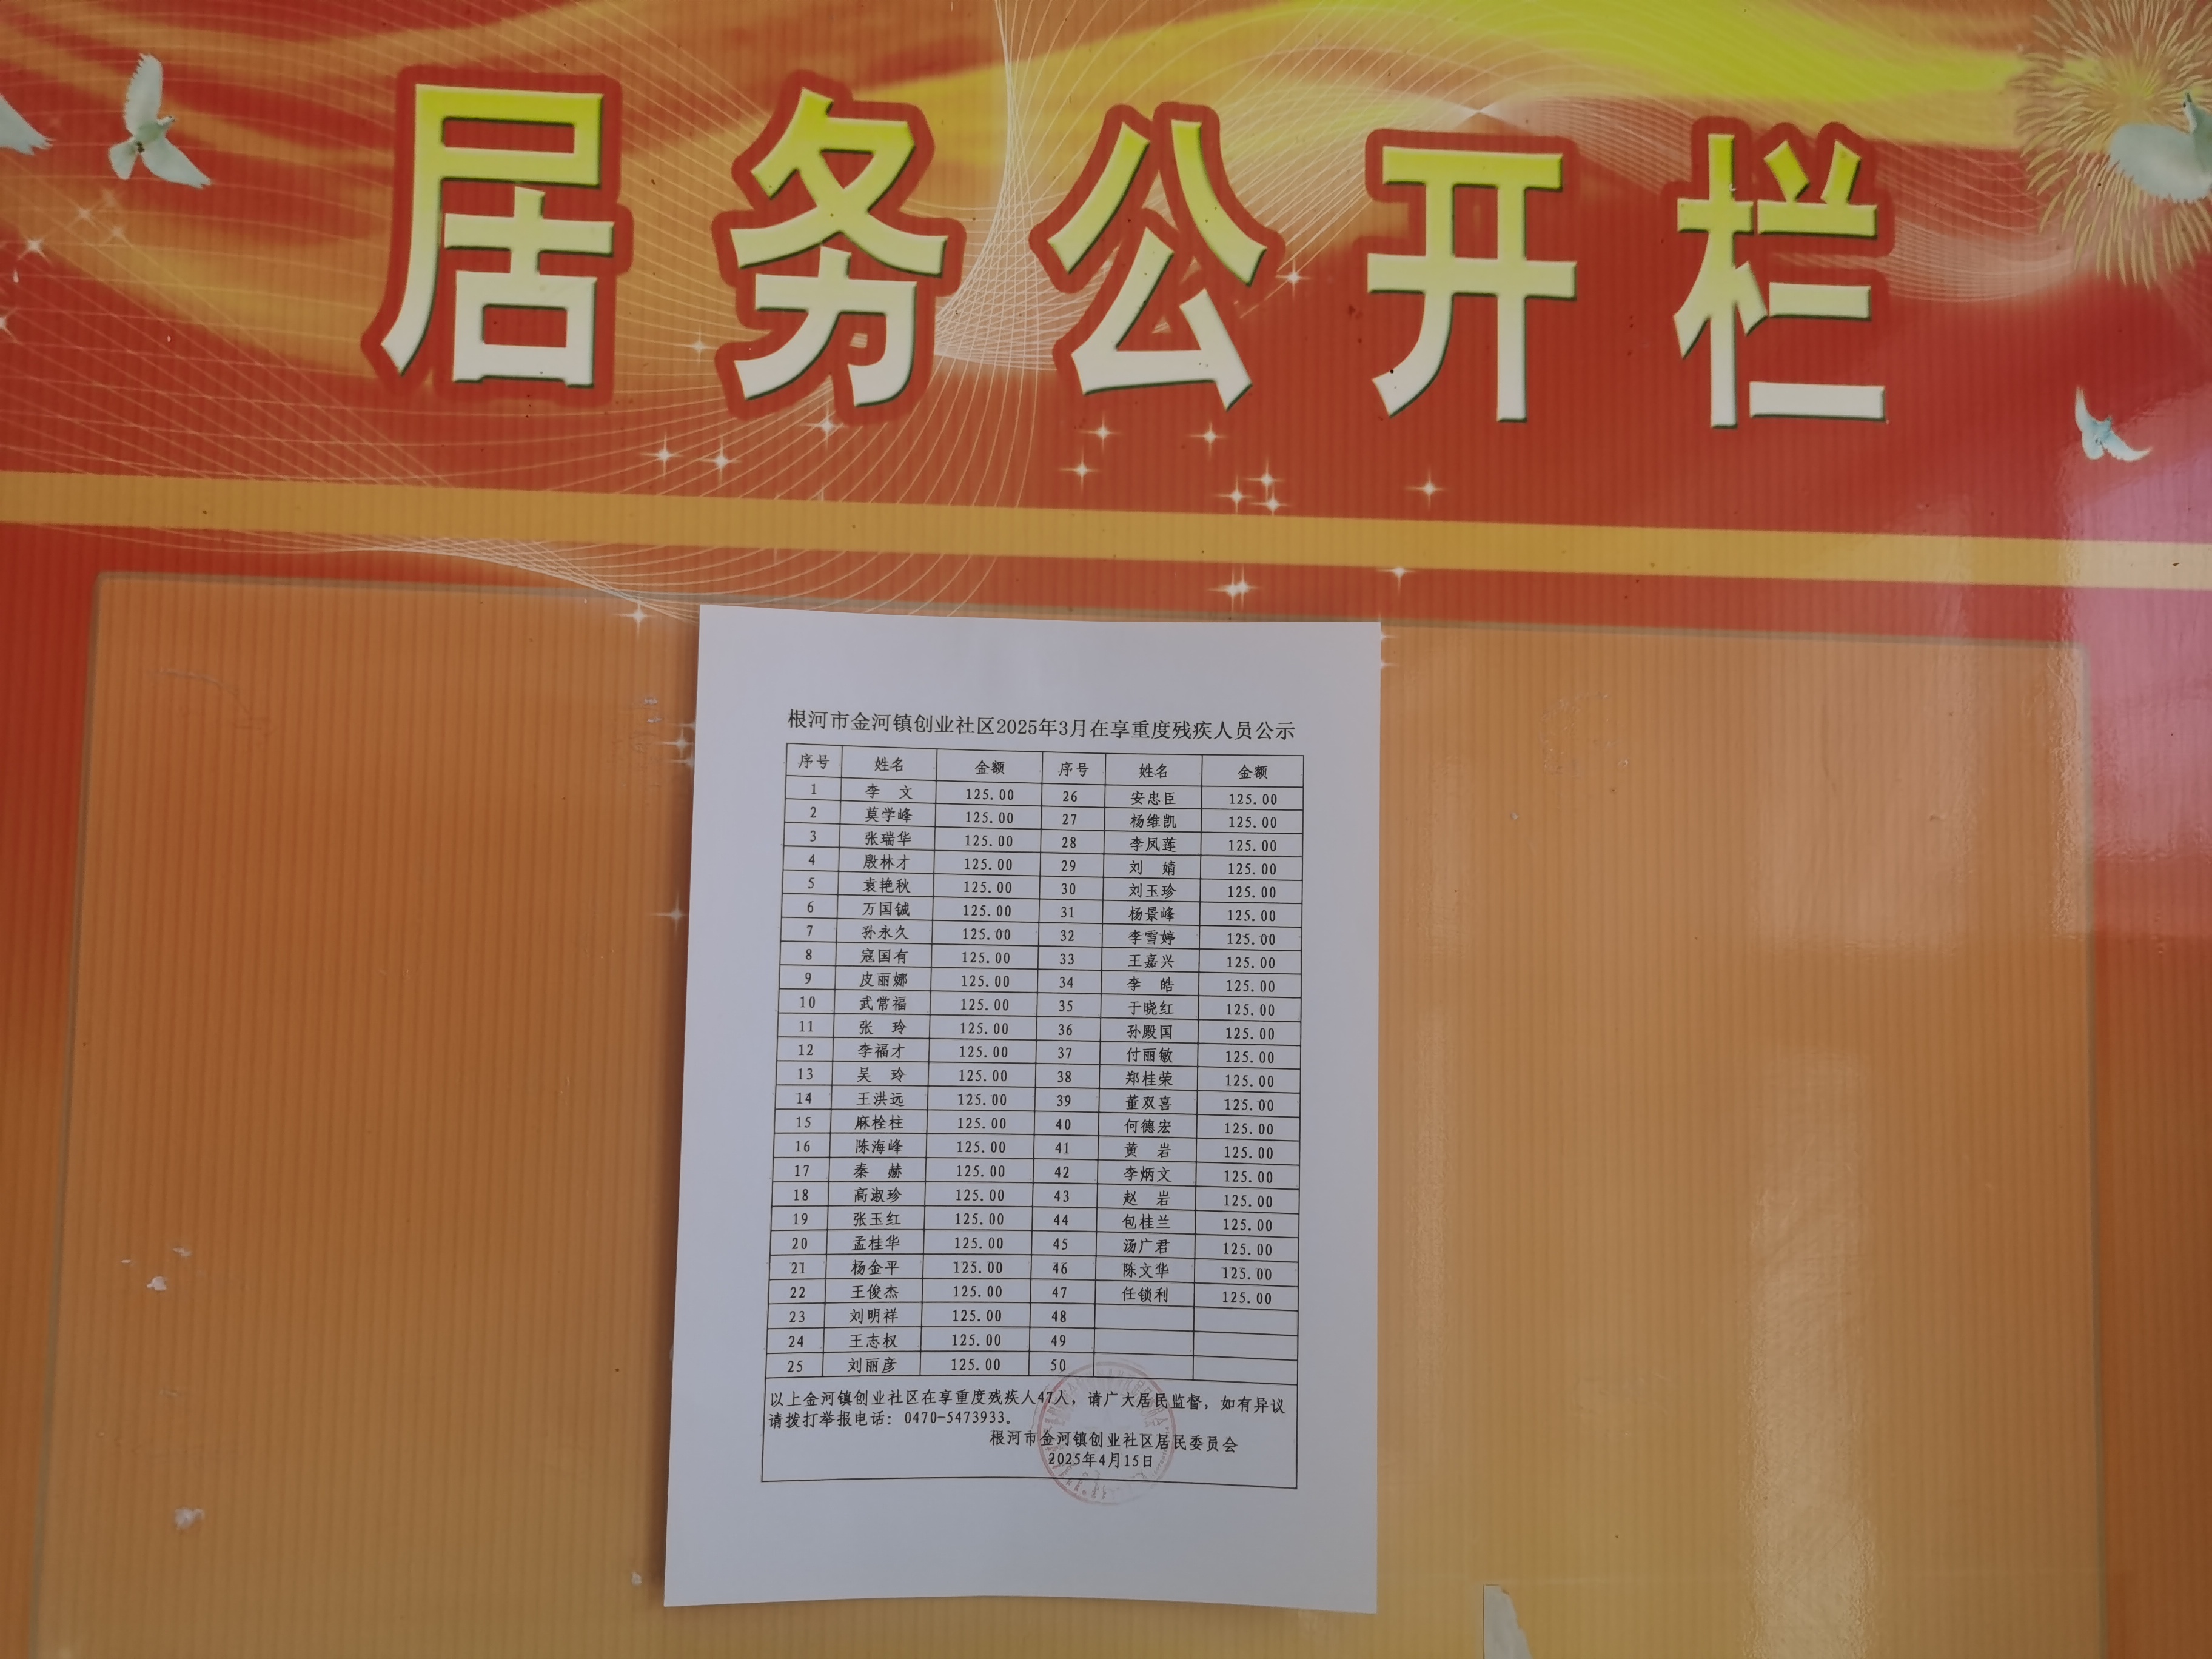 居务公开栏
根河市金河镇创业社区2025年3月在享重度残疾人员公示
序号 姓名 金额 序号 姓名 金额
1 李 文 125.00 26 安忠臣 125.00
2 莫学峰 125.00 27 杨维凯 125.00
3 张瑞华 125.00 28 李凤莲 125.00
4 殷林才 125.00 29 刘 婧 125.00
5 袁艳秋 125.00 30 刘玉珍 125.00
6 万国铖 125.00 31 杨景峰 125.00
7 孙永久 125.00 32 李雪婷 125.00
8 寇国有 125.00 33 王嘉兴 125.00
9 皮丽娜 125.00 34 李 皓 125.00
10 武常福 125.00 35 于晓红 125.00
11 张 玲 125.00 36 孙殿国 125.00
12 李福才 125.00 37 付丽敏 125.00
13 吴 玲 125.00 38 郑桂荣 125.00
14 王洪远 125.00 39 董双喜 125.00
15 麻栓柱 125.00 40 何德宏 125.00
16 陈海峰 125.00 41 黄 岩 125.00
17 秦 赫 125.00 42 李炳文 125.00
18 高淑珍 125.00 43 赵 岩 125.00
19 张玉红 125.00 44 包桂兰 125.00
20 孟桂华 125.00 45 汤广君 125.00
21 杨金平 125.00 46 陈文华 125.00
22 王俊杰 125.00 47 任锁利 125.00
23 刘明祥 125.00 48
24 王志权 125.00 49
25 刘丽彦 125.00 50
以上金河镇创业社区在享重度残疾人47人，请广大居民监督，如有异议
请拨打举报电话：0470-5473933。
根河市金河镇创业社区居民委员会
2025年4月15日